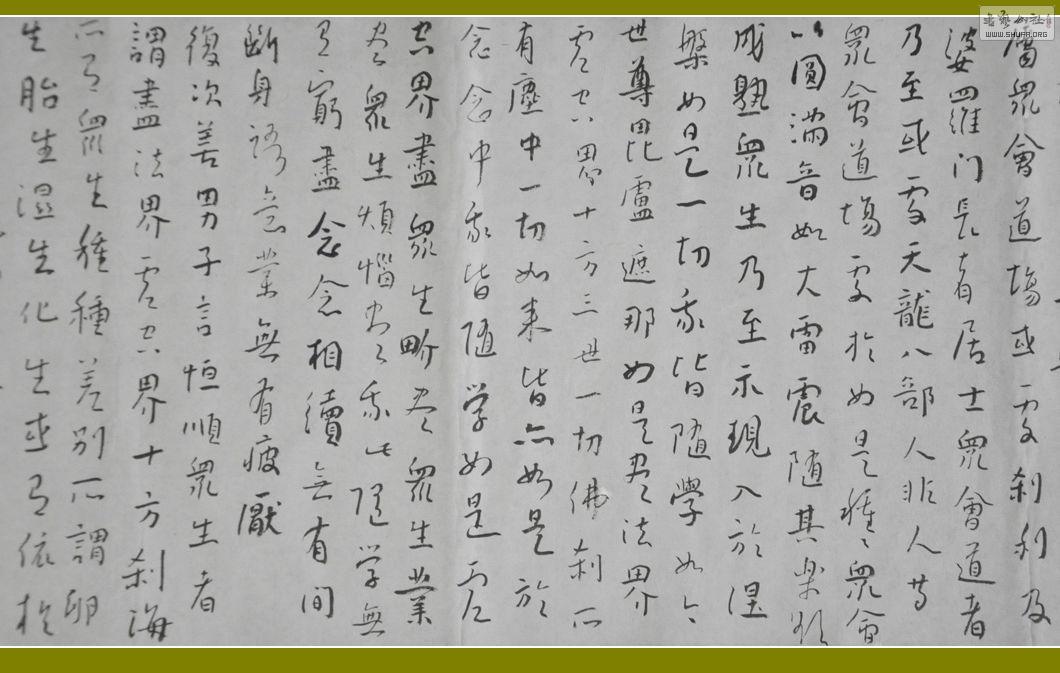 屬眾會道場或處刹利及
婆羅门長者居士眾會道者
乃至或處天天龍八部人非人等
眾會道場處於如是種々眾會
以圓滿音如大雷震随其樂欲
成熟眾生乃至示現入於涅
槃如是一切我皆随學如今
世尊毘盧遮那如是尽法界
虛空界十方三世一切佛刹所
有塵中一切如来皆亦如是於
念念中我皆随学如是虛
空界盡眾生畍尽眾生業
尽眾生煩惱尽々我此随学無
有窮盡念念相續無有間
斷身語意業無有疲厭
復次善男子言恒順眾生者
謂盡法界虛空界十方刹海
所有眾生種種差别所謂卵
生胎生湿生化生或有依於
WWW.SHUFA.ORG